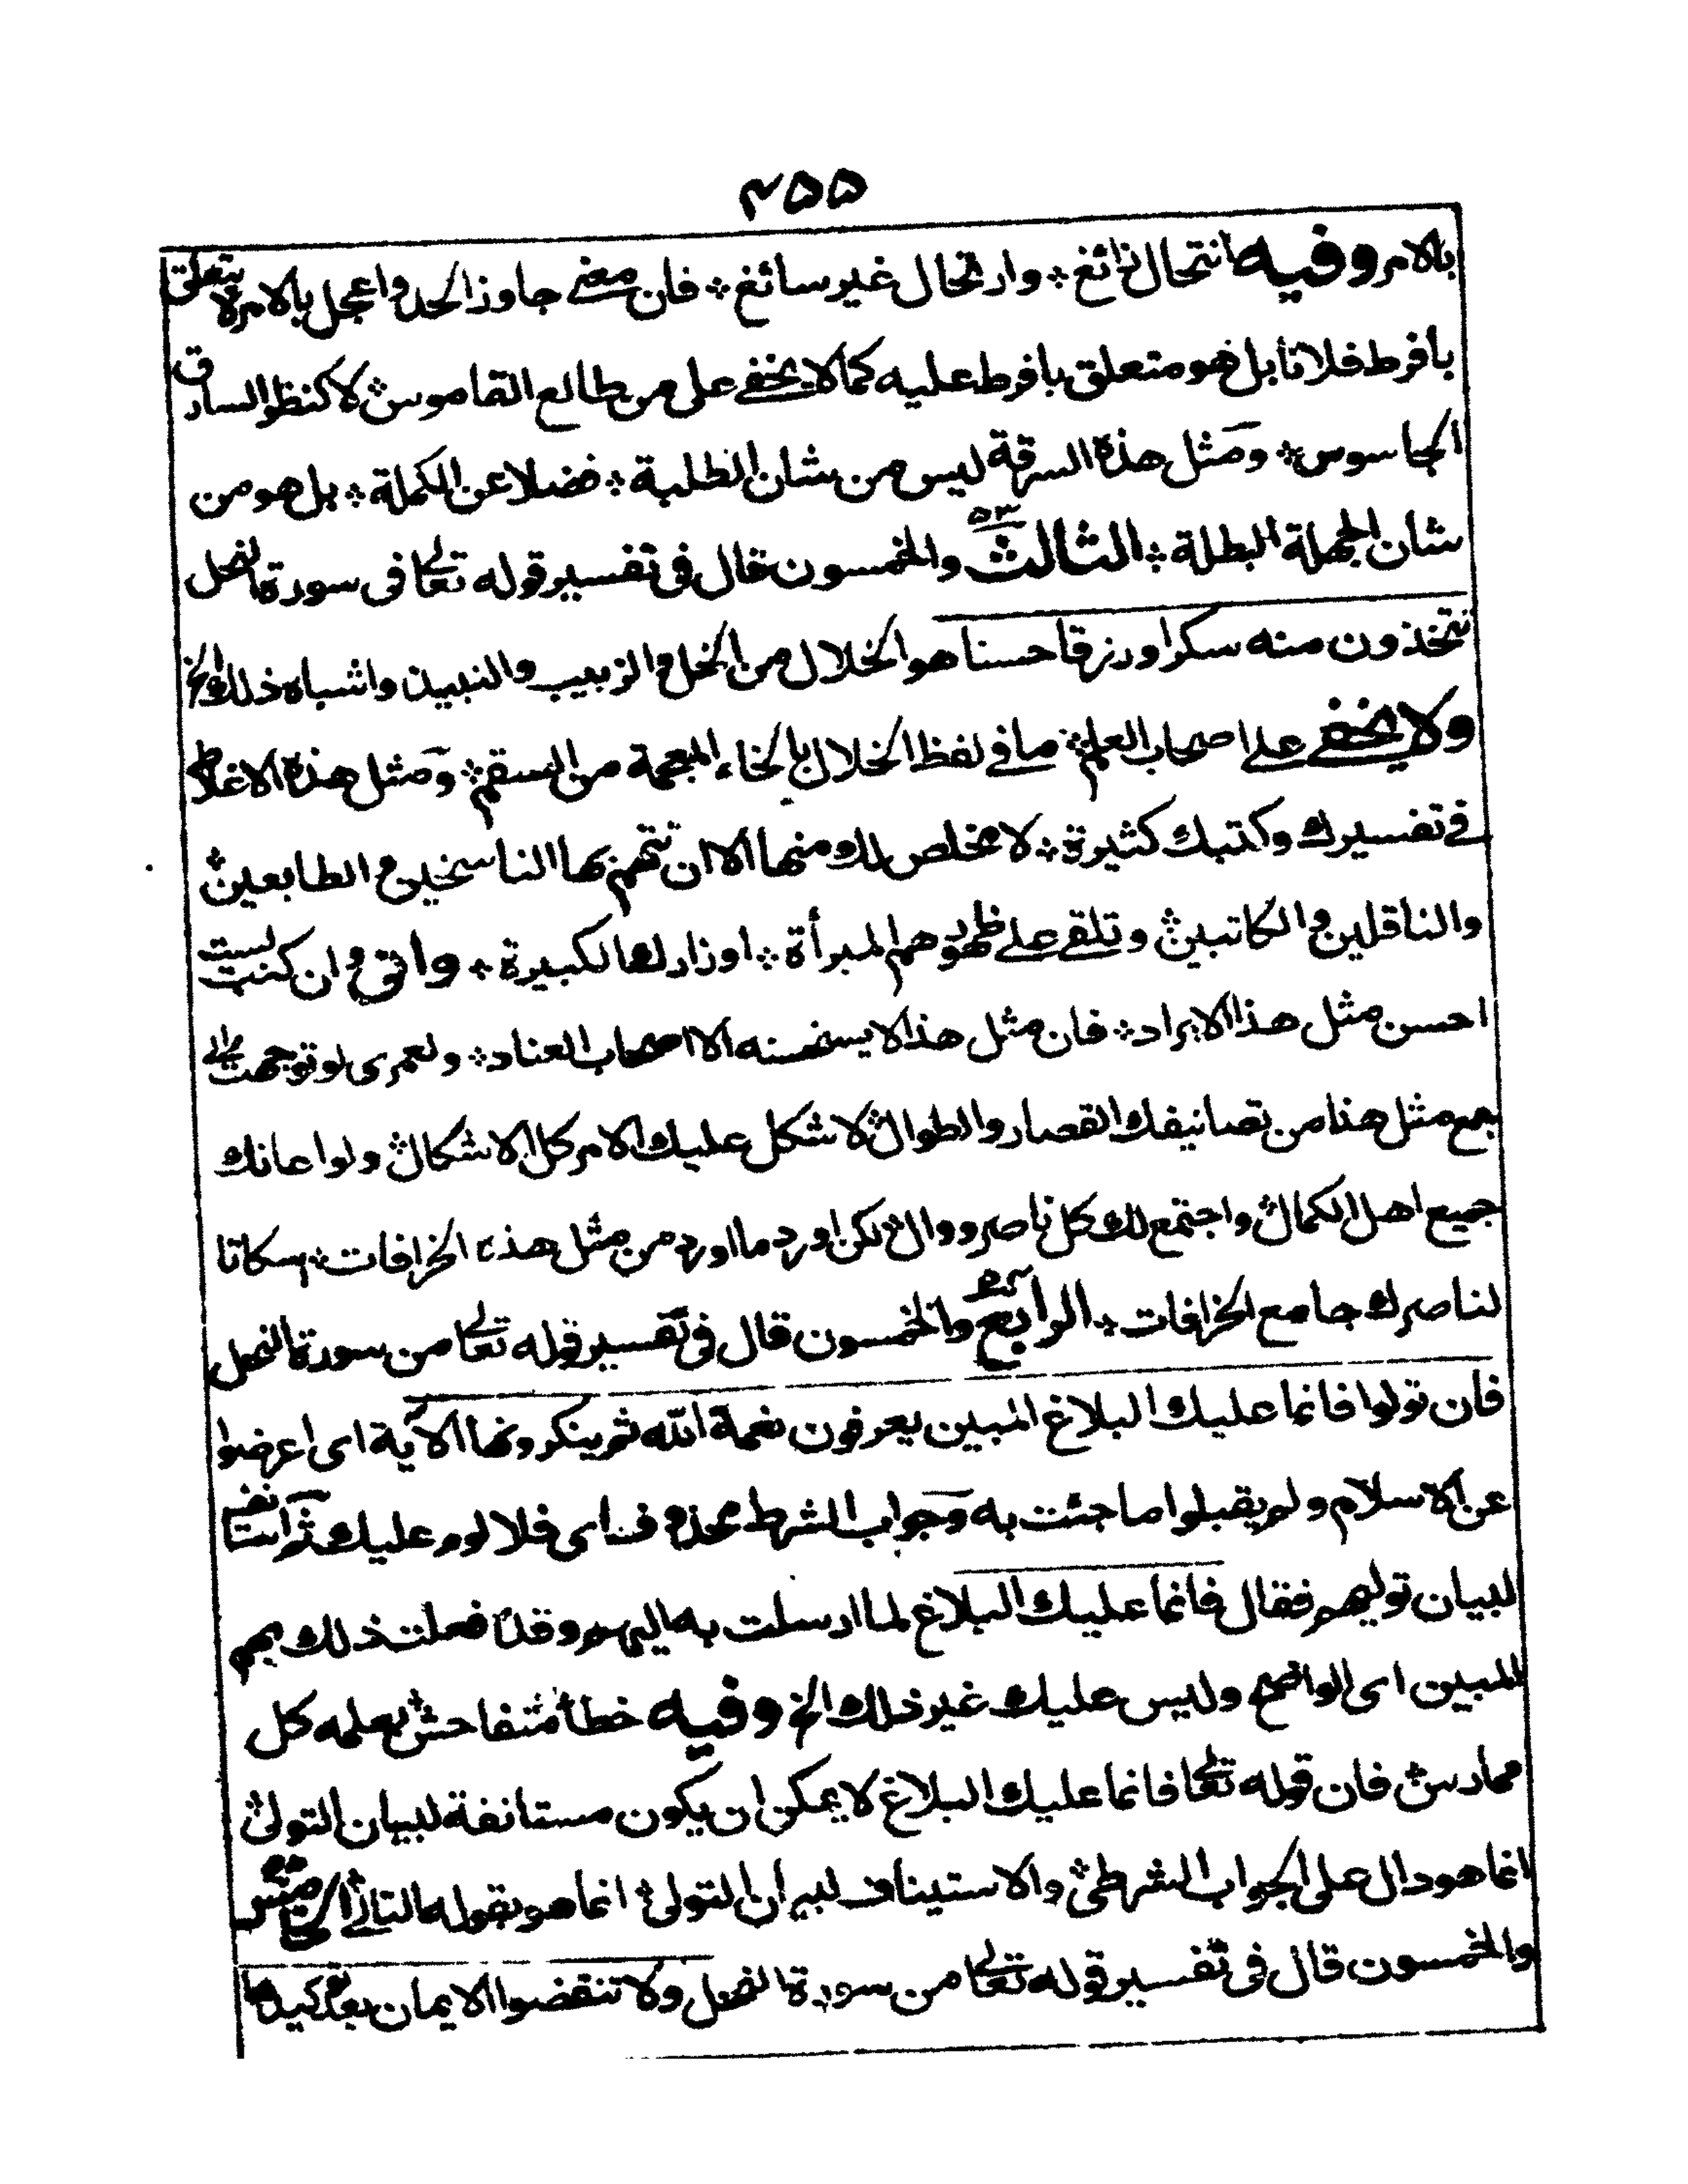 ۴۵۵
بالامر وفيه انتحال زائغ ؞ وارتحال غير سائغ ؞ فان معنى جاوز الحد واعجل بالامر لا يتعلق
بافرط فلانا بل هو متعلق بافرط عليه كما لا يخفى على من طالع القاموس ؞ لا كنظر السارق
الجاسوس ؞ ومثل هذه السرقة ليس من شان الطلبة ؞ فضلا عن الكملة ؞ بل هو من
شان الجهلة البطلة ؞ الثالث ۵۳ والخمسون قال فى تفسير قوله تعالى فى سورة النحل
تتخذون منه سكرا ورزقا حسنا هو الخلال من الخل والزبيب والنبيذ واشباه ذلك الخ
ولا يخفى على اصحاب العلم ؞ ما فى لفظ الخلال بالخاء المعجمة من السقم ؞ ومثل هذه الاغلاط
فى تفسيرك وكتبك كثيرة ؞ لا مخلص لك منها الا ان تتهم بها الناسخين والطابعين ؞
والناقلين والكاتبين ؞ وتلقى على ظهورهم المبرأة ؞ اوزارك الكبيرة ؞ وانى وان كنت لست
احسن مثل هذا الايراد ؞ فان مثل هذا لا يستحسنه الا اصحاب العناد ؞ ولعمرى لو توجهت الى
جمع مثل هذا من تصانيفك القصار والطوال ؞ لاشكل عليك الامر كل الاشكال ؞ ولو اعانك
جميع اهل الكمال ؞ واجتمع لك كل ناصر ووال ؞ لكن اورد ما اورد من مثل هذه الخرافات ؞ اسكاتا
لناصرك جامع الخرافات ؞ الرابع ۵۴ والخمسون قال فى تفسير قوله تعالى من سورة النحل
فان تولوا فانما عليك البلاغ المبين يعرفون نعمة الله ثم ينكرونها الآية اى اعرضوا
عن الاسلام ولم يقبلوا ما جئت به وجواب الشرط محذوف اى فلا لوم عليك ثم استانف
لبيان توليهم فقال فانما عليك البلاغ لما ارسلت به اليهم وقد فعلت ذلك بهم
المبين اى الواضح وليس عليك غير ذلك الخ وفيه خطأ متفاحش ؞ يعلمه كل
ممارس ؞ فان قوله تعالى فانما عليك البلاغ لا يمكن ان يكون مستانفة لبيان التولى ؞
انما هو دال على الجواب الشرطى ؞ والاستيناف لبيان التولى ؞ انما هو بقوله التالى ؞ الخامس ۵۵
والخمسون قال فى تفسير قوله تعالى من سورة النحل ولا تنقضوا الايمان بعد توكيدها